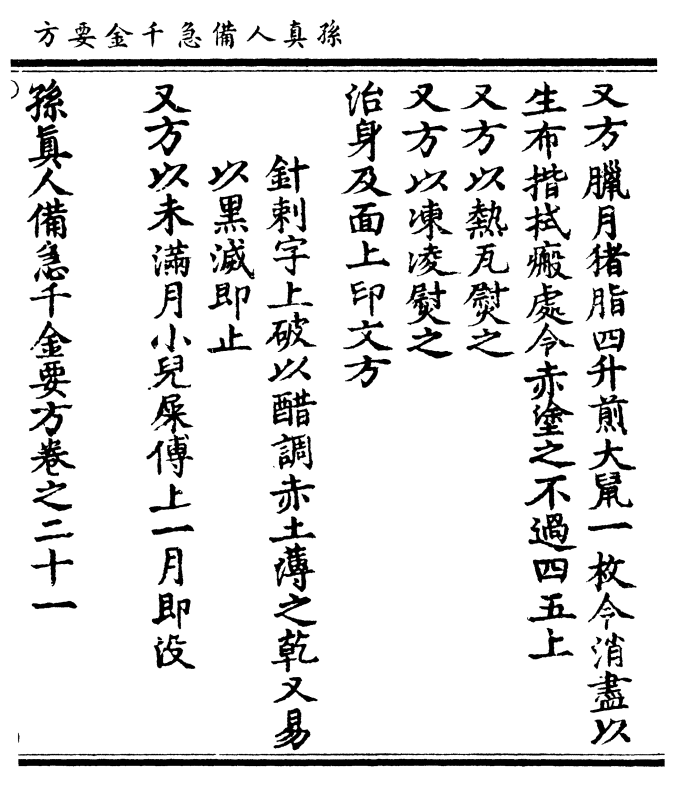 孫真人備急千金要方
又方臘月猪脂四升煎大鼠一枚令消盡以
生布揩拭瘢處令赤塗之不過四五上
又方以熱瓦熨之
又方以凍凌熨之
治身及面上印文方
針刺字上破以醋調赤土薄之乾又易
以黑滅即止
又方以未滿月小兒屎傅上一月即没
孫真人備急千金要方卷之二十一